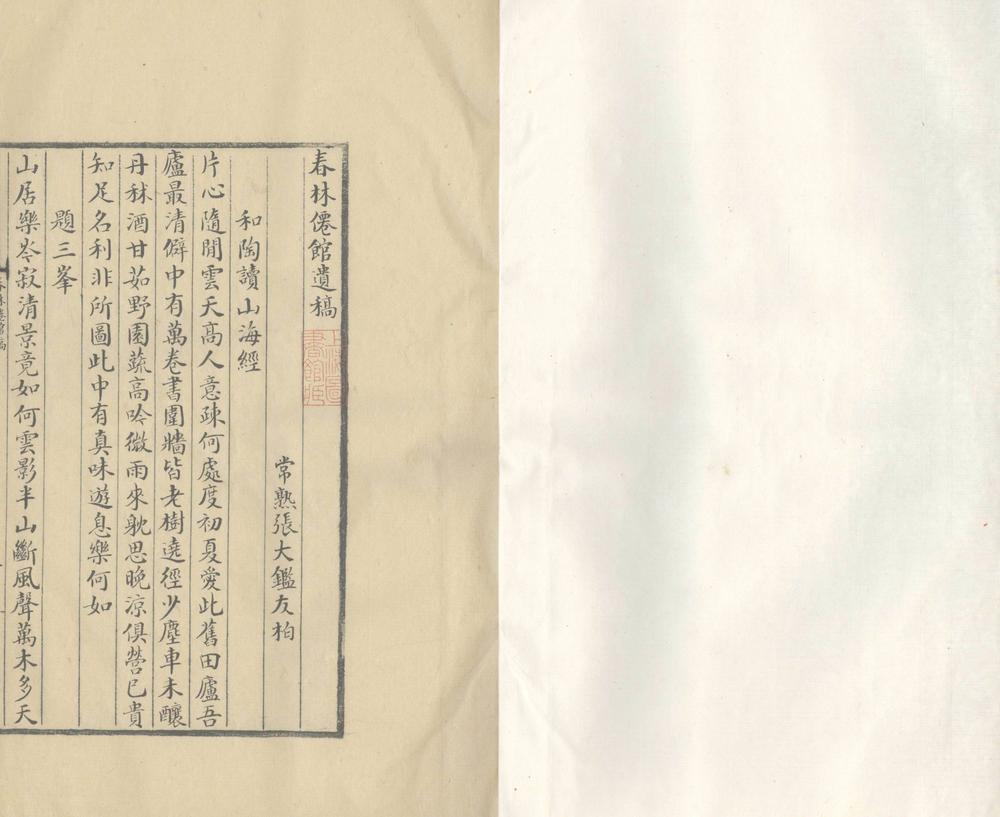 春林僊館遺稿
上海圖書館藏
常熟張大鑑友柏
和陶讀山海經
片心隨閒雲天高人意疎何處度初夏愛此舊田廬吾
廬最清僻中有萬卷書圍牆皆老樹遶徑少塵車未釀
丹秫酒甘茹野園蔬高吟微雨來躭思晚涼俱營已貴
知足名利非所圖此中有真味遊息樂何如
題三峯
山居樂岑寂清景竟如何雲影半山斷風聲萬木多天
春林僊館稿